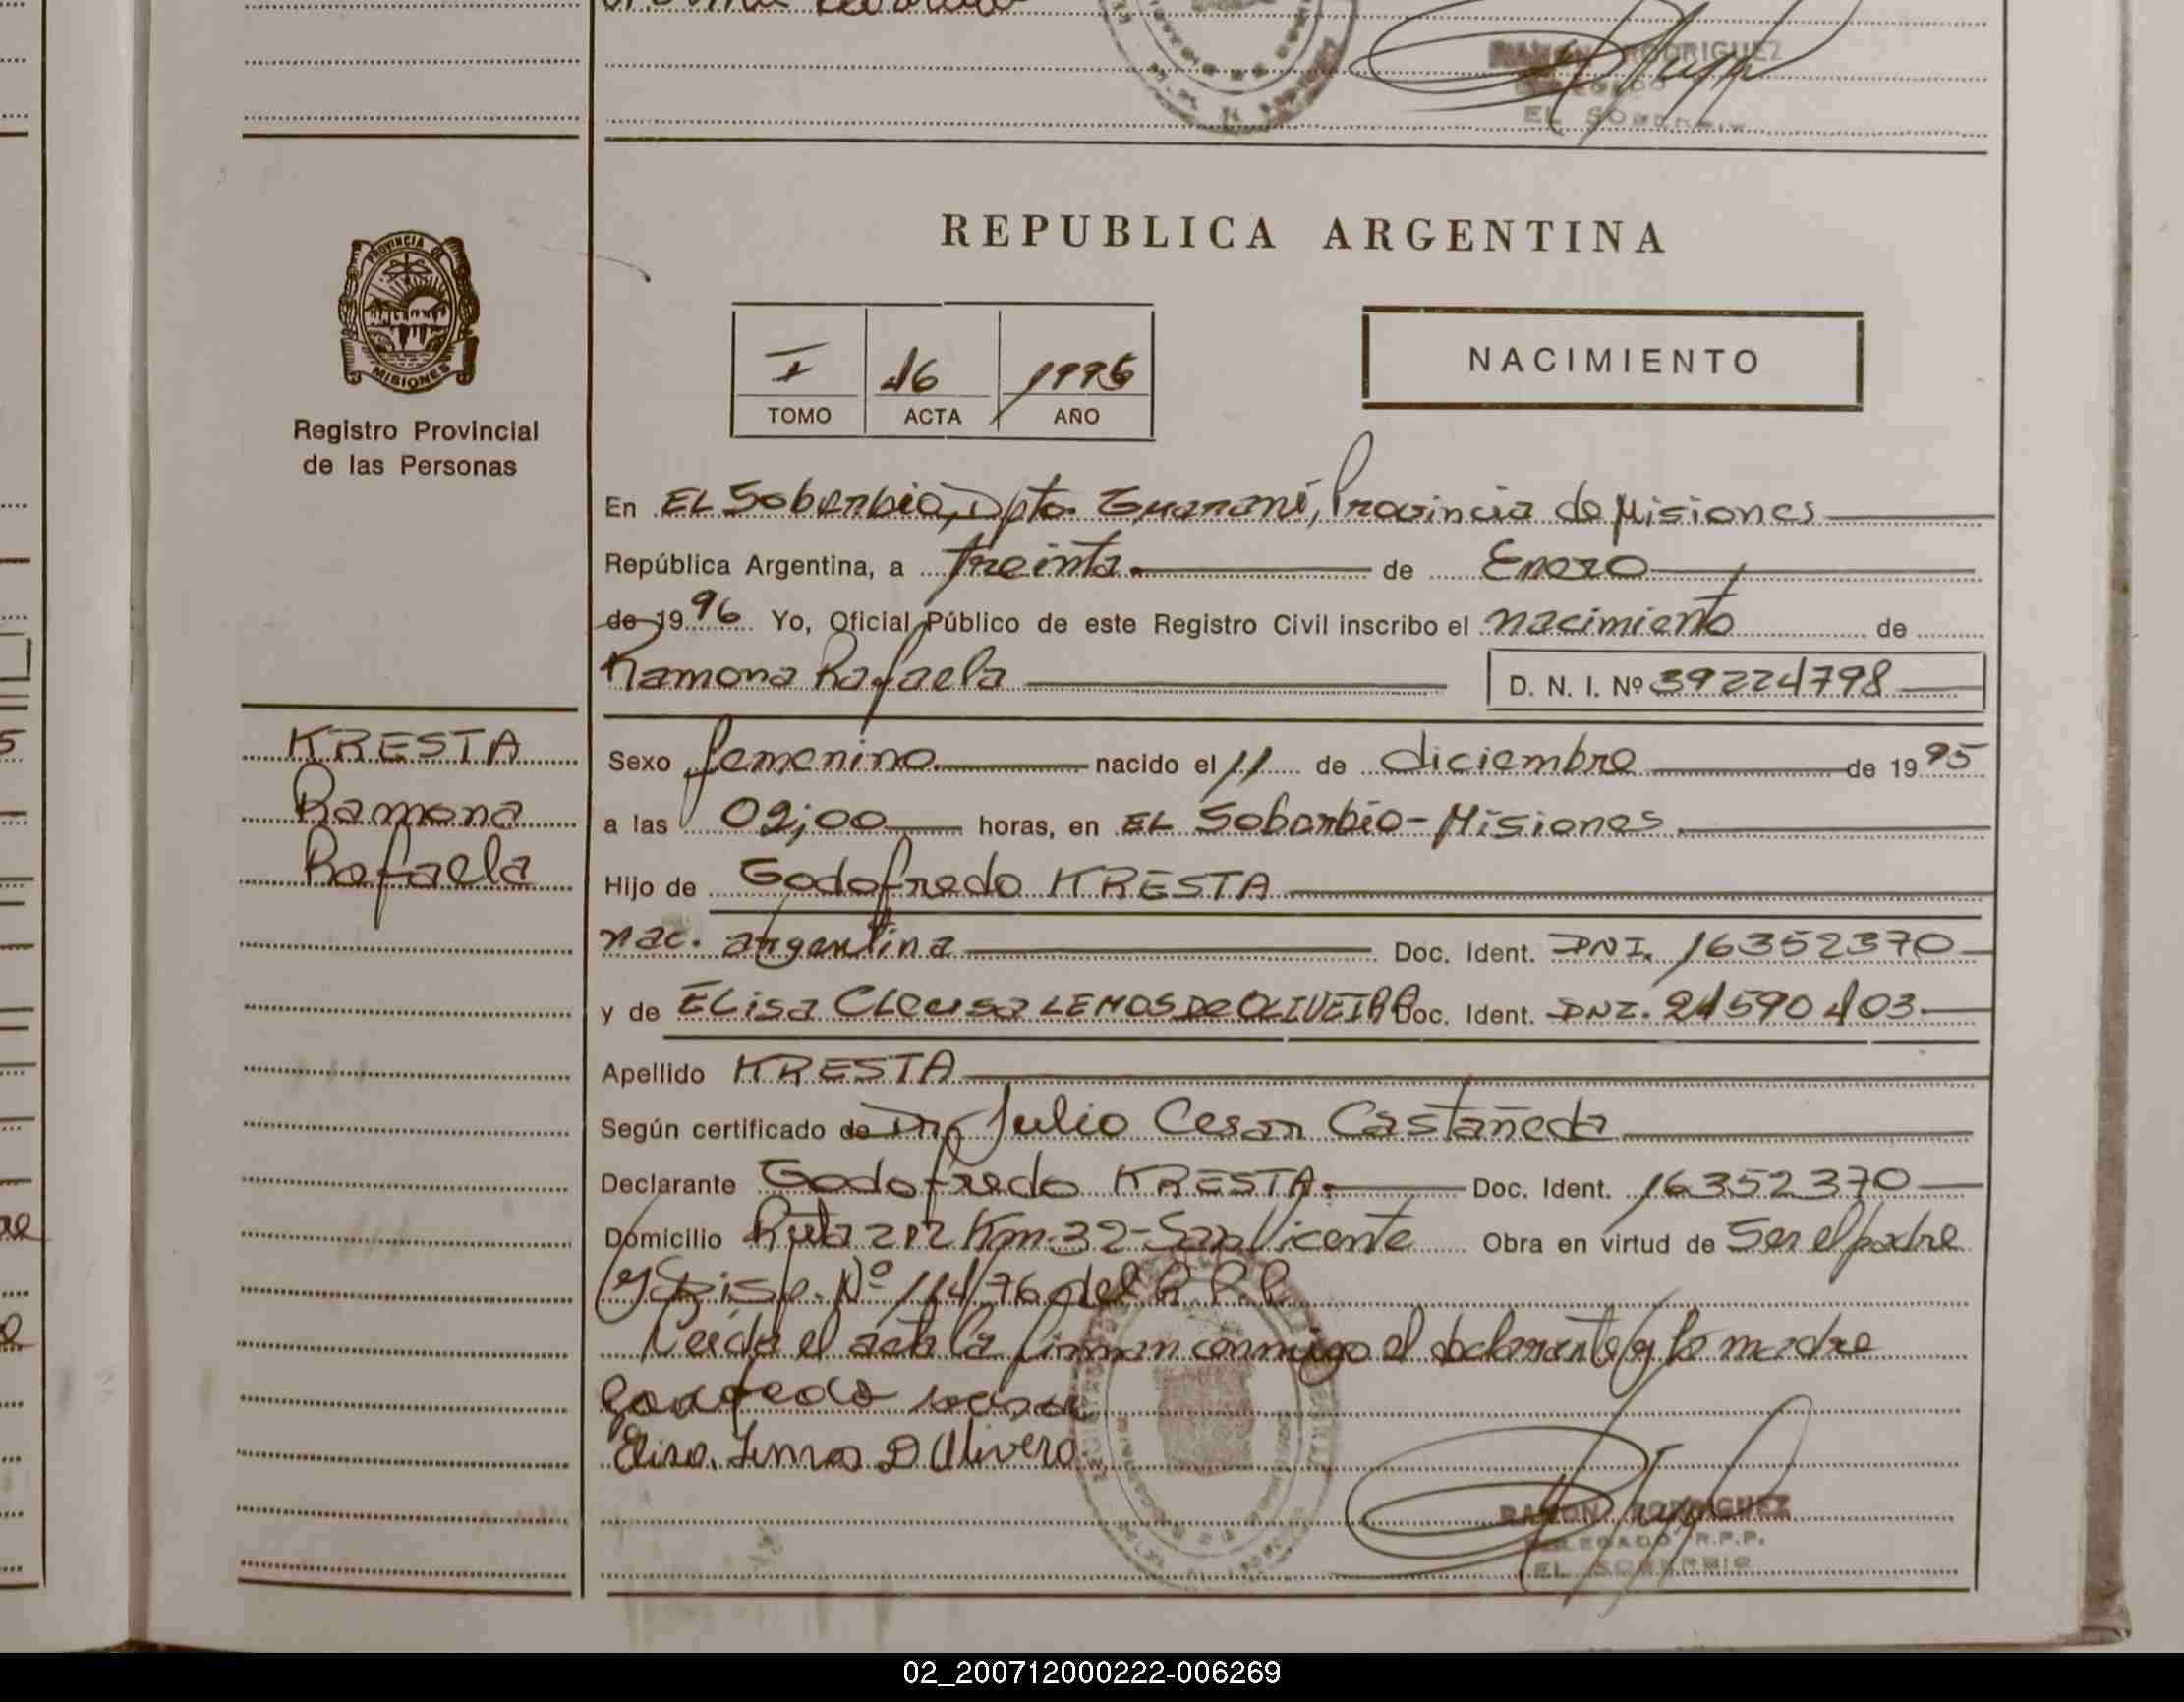 RAMON RODRIGUEZ
EL SOBERBIO
REPUBLICA ARGENTINA
PROVINCIA DE
MISIONES
Registro Provincial
de las Personas
I 16 1996
TOMO ACTA AÑO
NACIMIENTO
En EL Soberbio, Dpto. Guaraní, Provincia de Misiones
República Argentina, a treinta de Enero
de 1996 Yo, Oficial Público de este Registro Civil inscribo el nacimiento de
Ramona Rafaela D. N. I. Nº 39224798
KRESTA
Ramona
Rafaela
Sexo femenino nacido el 11 de diciembre de 1995
a las 02;00 horas, en EL Soberbio - Misiones
Hijo de Godofredo KRESTA
nac. argentina Doc. Ident. DNI. 16352370
y de ELisa CLeusa LEMOS De OLIVEIRA Doc. Ident. DNI. 24590403
Apellido KRESTA
Según certificado de Dr. Julio Cesar Castañeda
Declarante Godofredo KRESTA Doc. Ident. 16352370
Domicilio Ruta 212 Km. 32 - San Vicente Obra en virtud de Ser el padre
y Disp. Nº 114/76 del R.P.P.
Leída el acta la firman conmigo el declarante y la madre
Elisa. Lemos D Olivera
RAMON RODRIGUEZ
DELEGADO R.P.P.
EL SOBERBIO
02_200712000222-006269